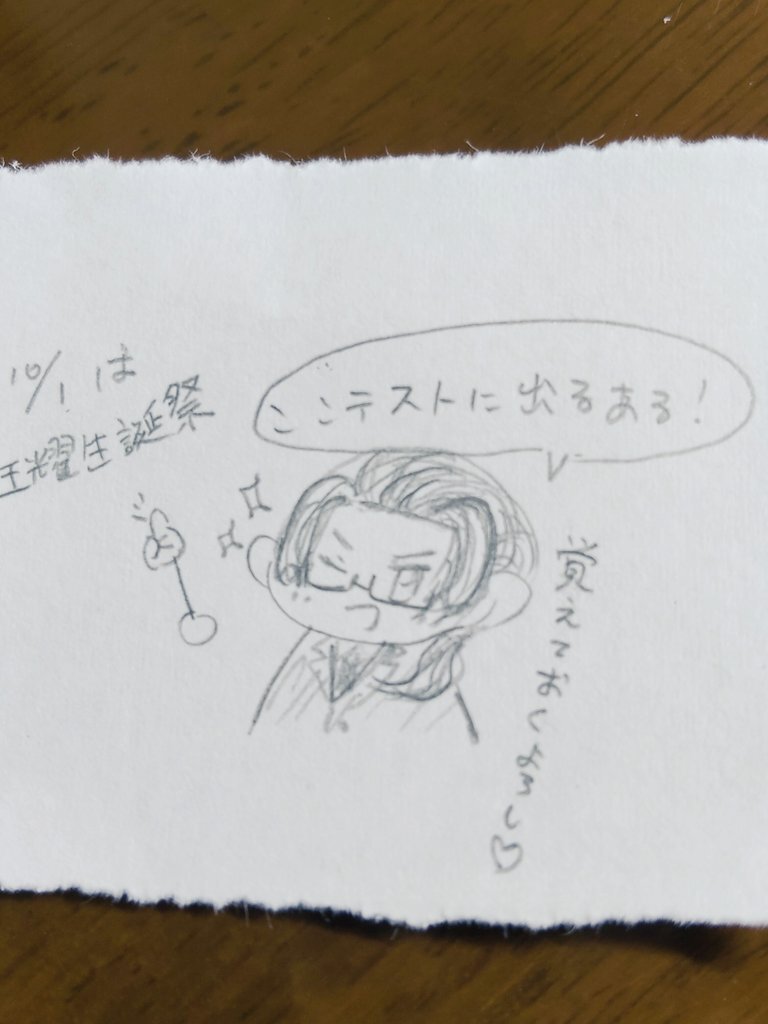 10/1 は
王耀生誕祭
ここテストに出るある!
覚えておくよろし♡